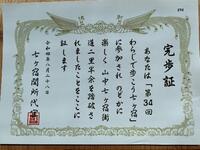 完歩証
あなたは「第34回
わらじで歩こう七ヶ宿」
に参加され のどかに
楽しく 山中七ヶ宿街
道二里半余を踏破さ
れましたことをここに
証します
令和四年八月二十八日
七ヶ宿関所代官